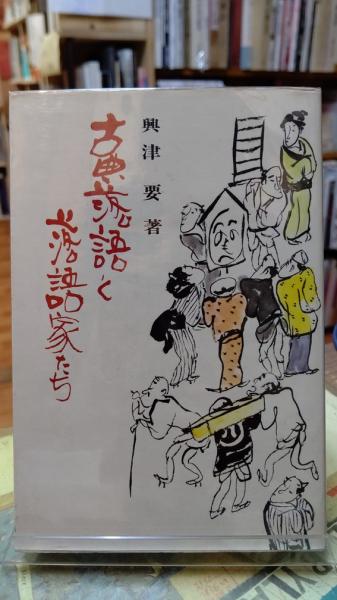 興津要著
古典落語と
落語家たち